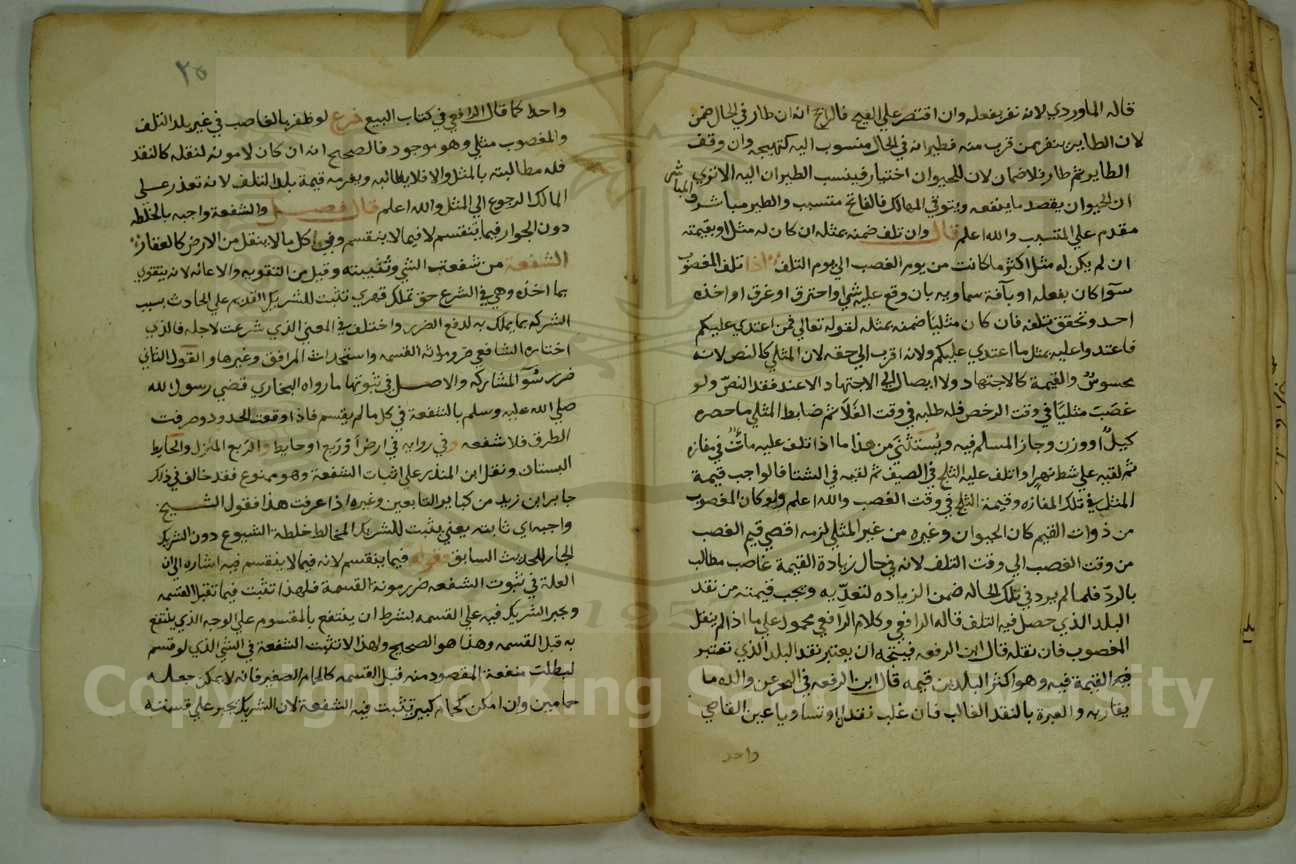 قاله الماوردي لانه نفر بفعله وان اقتصر علي الفتح فالراجح انه ان طار في الحال ضمن
لان الطاير ينفر ممن قرب منه فطيرانه في الحال منسوب اليه كتهييجه وان وقف
الطاير ثم طار فلا ضمان لان للحيوان اختيار فينسب الطيران اليه الا تري
ان الحيوان يقصد ما ينفعه ويتوقي المهالك فالفاتح متسبب والطير مباشر والمباشر
مقدم علي المتسبب والله اعلم قال وان تلف ضمنه بمثله ان كان له مثل او بقيمته
ان لم يكن له مثل اكثر ما كانت من يوم الغصب الي يوم التلف اذا تلف المغصوب
سوا كان بفعله او بآفة سماويه بان وقع عليه شي او احترق او غرق او اخذه
احد وتحقق تلفه فان كان مثليا ضمنه بمثله لقوله تعالي فمن اعتدي عليكم
فاعتدوا عليه بمثل ما اعتدي عليكم ولانه اقرب الي حقه لان المثلي كالنص لانه
محسوس والقيمة كالاجتهاد ولا ايصال الي الاجتهاد الا عند فقد النص ولو
غصب مثليا في وقت الرخص فله طلبه في وقت الغلا ثم ضابط المثلي ما حصره
كيل او وزن وجاز السلم فيه ويستثني من هذا ما اذا تلف عليه مآ في مفازه
ثم لقيه علي شط نهر او اتلف عليه الثلج في الصيف ثم لقيه في الشتا فالواجب قيمة
المثل في تلك المفازه وقيمة الثلج في وقت الغصب والله اعلم ولو كان المغصوب
من ذوات القيم كان الحيوان وغيره من غير المثلي لزمه اقصي قيم الغصب
من وقت الغصب الي وقت التلف لانه في حال زيادة القيمة غاصب مطالب
بالرد فلما لم يرد في تلك الحاله ضمن الزياده لتعديه ويجب قيمته من نقد
البلد الذي حصل فيه التلف قاله الرافعي وكلام الرافعي محمول علي ما اذا لم ينقل
المغصوب فان نقله قال ابن الرفعه فيتجه ان يعتبر نقد البلد الذي تعتبر
القيمة فيه وهو اكثر البلدين قيمه قال ابن الرفعه في البحر عن والده ما
يقاربه والعبرة بالنقد الغالب فان غلب نقدان وتساويا عين القاضي
واحد
٢٥
واحدا كما قال الرافعي في كتاب البيع فرع لو ظفر بالغاصب في غير بلد التلف
والمغصوب مثلي وهو موجود فالصحيح انه ان كان لا مونه لنقله كالنقد
فله مطالبته بالمثل والا فلا يطالبه ويغرمه قيمة بلد التلف لانه تعذر علي
المالك الرجوع الي المثل والله اعلم قال فصل والشفعة واجبه بالخلطه
دون الجوار فيما ينقسم لا فيما لا ينقسم وفي كل ما لا ينقل من الارض كالعقار
الشفعة من شفعت الشي وثنيته وقيل من التقويه والاعانه لانه يتقوي
بما اخذه وهي في الشرع حق تملك قهري تثبت للشريك القديم علي الحادث بسبب
الشركه بما يملك به لدفع الضرر واختلف في المعني الذي شرعت لاجله فالذي
اختاره الشافعي ضرر مونة القسمه واستحداث المرافق وغيرها والقول الثاني
ضرر سوء المشاركه والاصل في ثبوتها ما رواه البخاري قضي رسول الله
صلي الله عليه وسلم بالشفعة في كل ما لم يقسم فاذا وقعت الحدود وصرفت
الطرق فلا شفعه وفي روايه في ارض او ربع او حايط والربع المنزل والحايط
البستان ونقل ابن المنذر علي اثبات الشفعة وهو ممنوع فقد خالف في ذلك
جابر ابن زيد من كبار التابعين وغيره اذا عرفت هذا فقول الشيخ
واجبه اي ثابته يعني يثبت للشريك المخالط خلطة الشيوع دون الشريك
الجار للحديث السابق وقوله فيما ينقسم لانه فيما لا ينقسم فيه اشاره الي ان
العلة في ثبوت الشفعه ضرر مونة القسمة فلهذا تثبت فيما تقبل القسمه
وجبر الشريك فيه علي القسمه بشرط ان ينتفع بالمقسوم علي الوجه الذي ينتفع
به قبل القسمه وهذا هو الصحيح ولهذا لا تثبت الشفعة في الشي الذي لو قسم
لبطلت منفعة المقصود منه قبل القسمه كالحمام الصغير فانه لا يمكن جعله
حمامين وان امكن كحمام كبير فيثبت فيه الشفعة لان الشريك يجبر علي قسمته
Copyright © King Saud University